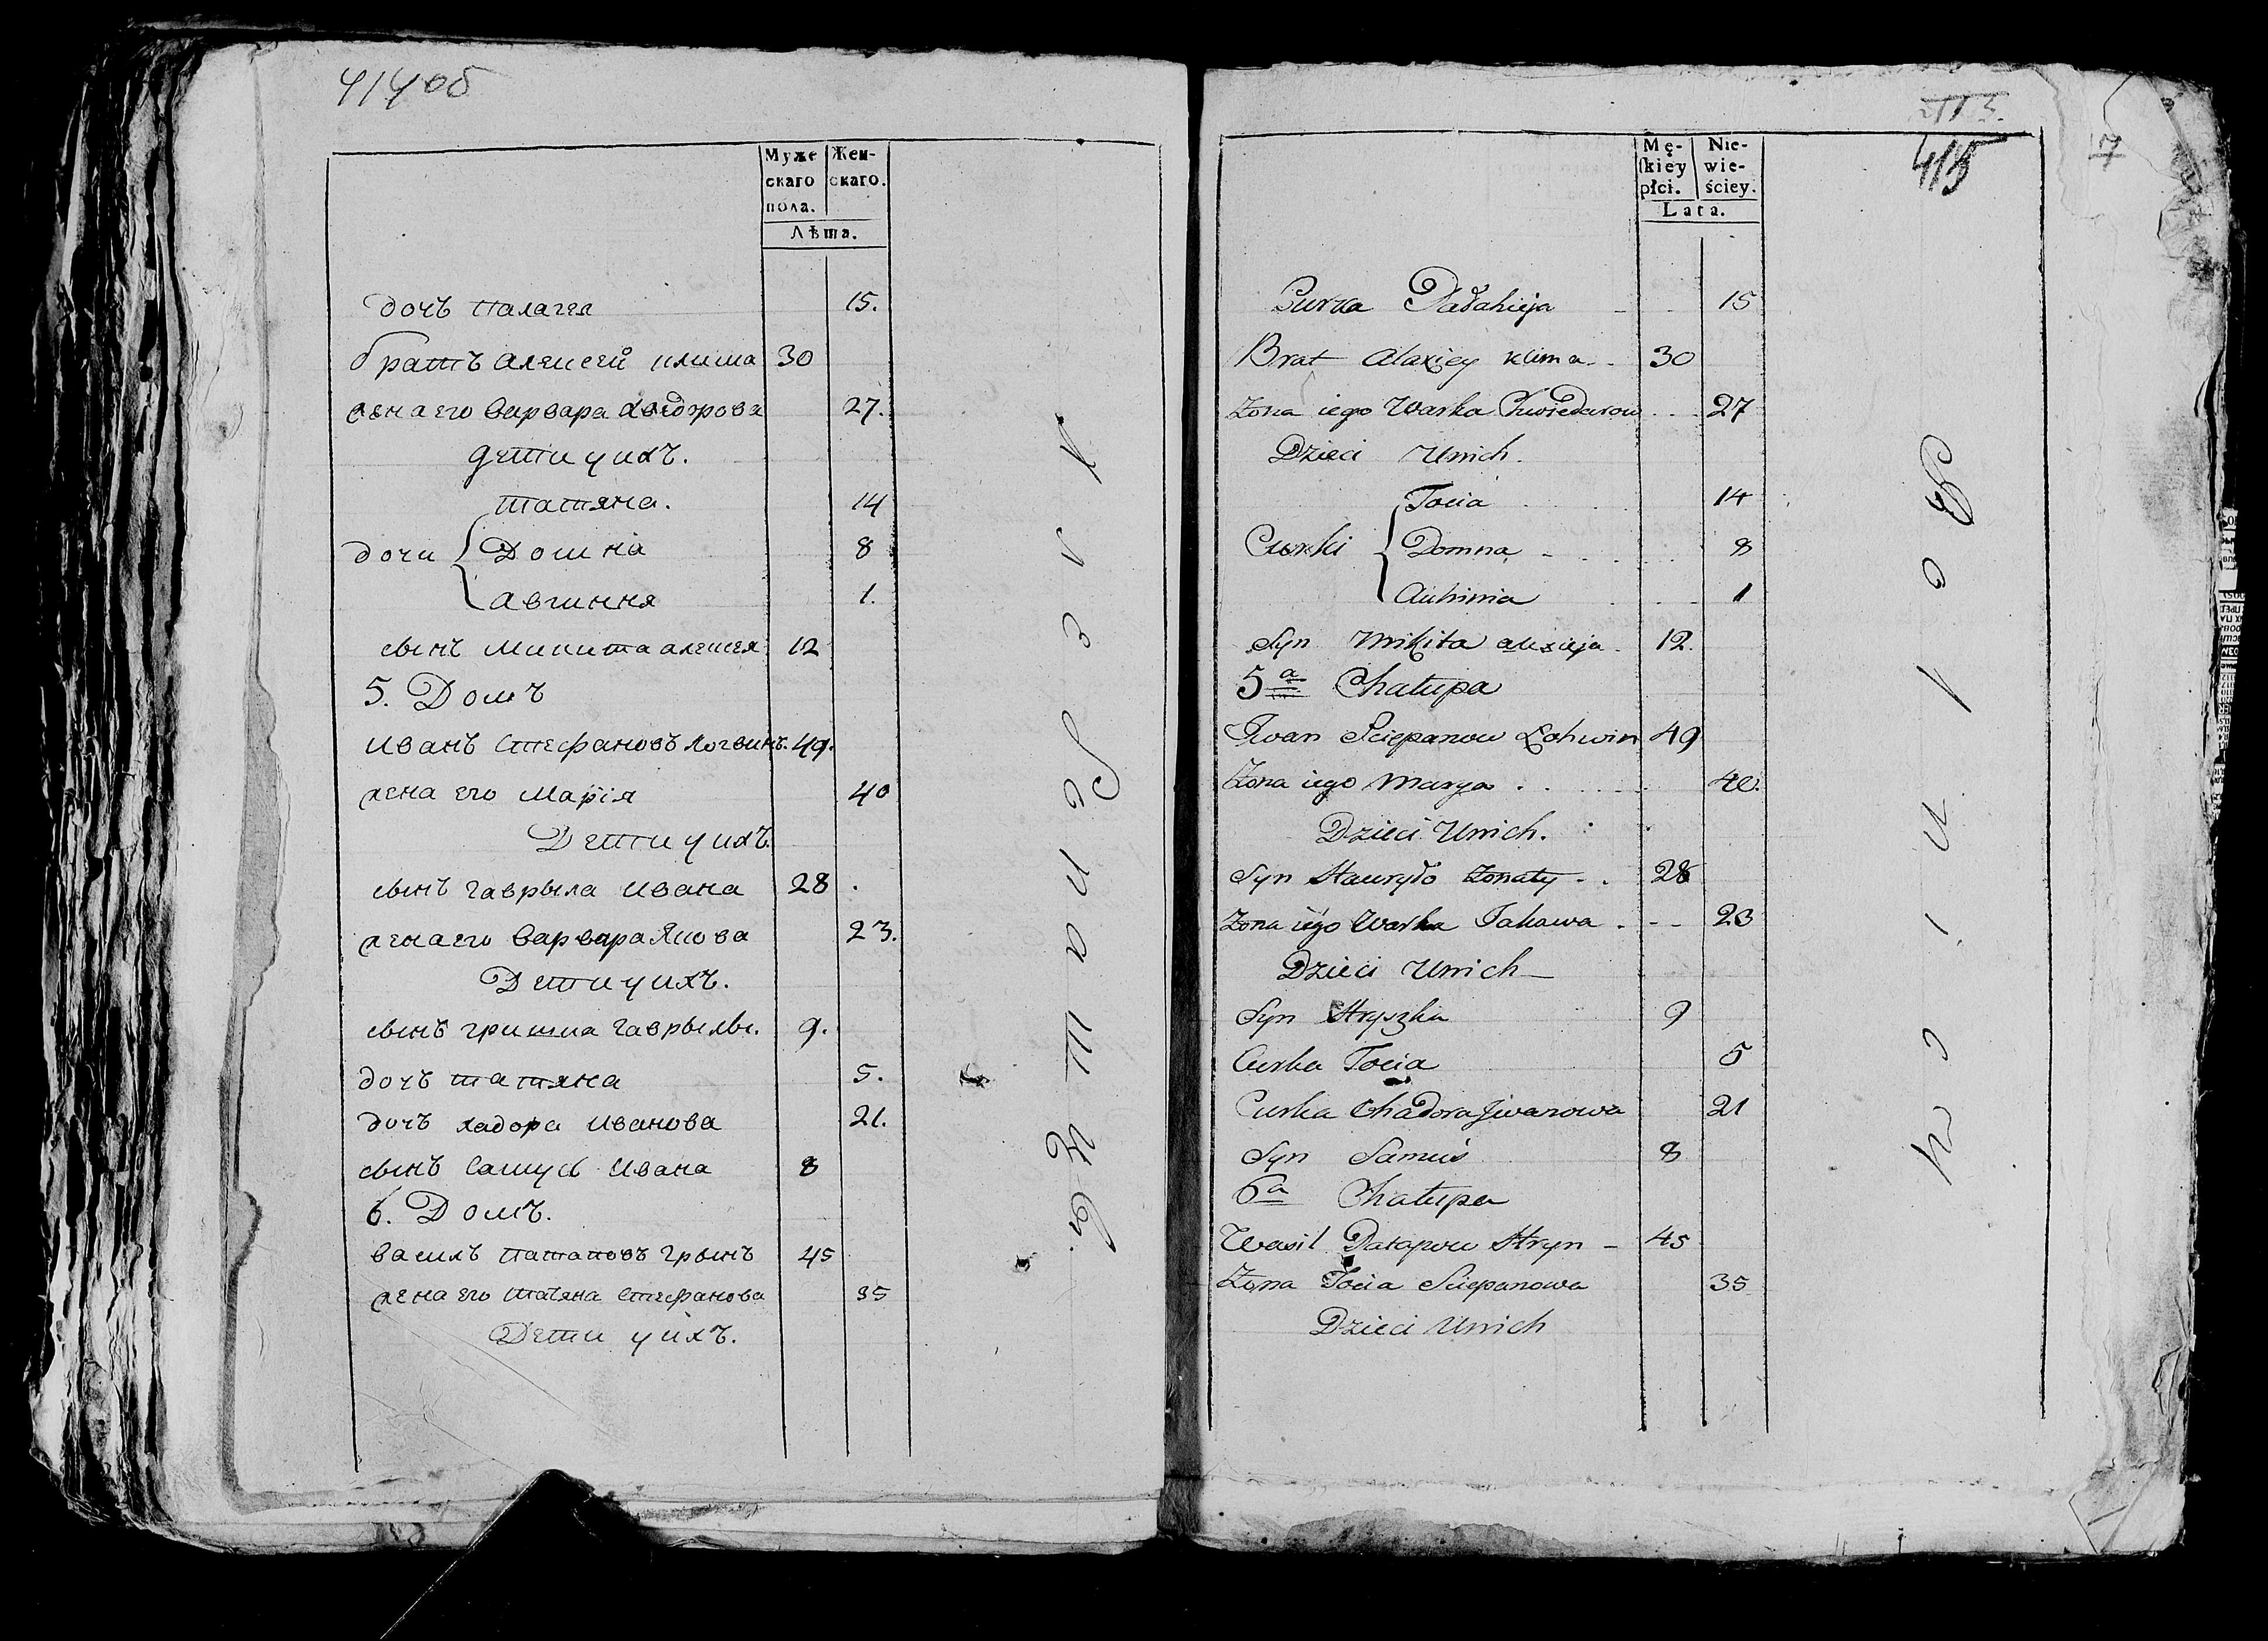 414об
Муже
скаго
пола.
Жен-
скаго.
Лѣта.
дочъ палагея 15.
братъ алексей клима 30
жена его варвара хведорова 27.
дети у ихъ.
татяна. 14
дочи { Домна 8
авгиння 1.
сынъ микита алексея 12
5. Домъ
иванъ Стефановъ логвинъ. 49.
жена его марїя 40
Дети у ихъ
сынъ гаврыла ивана 28
жена его варвара Якова 23.
Дети у ихъ.
сынъ гришка гаврылы. 9.
дочъ татяна 5.
дочъ хадора иванова 21.
сынъ Самусь ивана 8
6. Домъ.
василъ патаповъ грынъ 45
жена его татяна стефанова 35
Дети у ихъ.
415
7
Mę-
skiey
płci.
Nie-
wie-
ściey.
Lata.
Curka Pałahieja 15
Brat Alaxiey Klima 30
Zona iego Warka Chwiedarow 27
Dzieci Unich.
Tocia 14
Curki { Domna 8
Auhinia 1
Syn Mikita alexieja 12.
5a Chałupa
Jwan Sciepanow Łohwin 49
Zona iego Marya 40.
Dzieci Unich.
Syn Hauryło Zonaty 28
Zona iego Warka Jakawa 23
Dzieci Unich
Syn Hryszka 9
Curka Tocia 5
Curka Chadora Jwanowa 21
Syn Samuś 8
6a Chałupa
Wasil Patapow Hryn 45
Zona Tocia Sciepanowa 35
Dzieci Unich